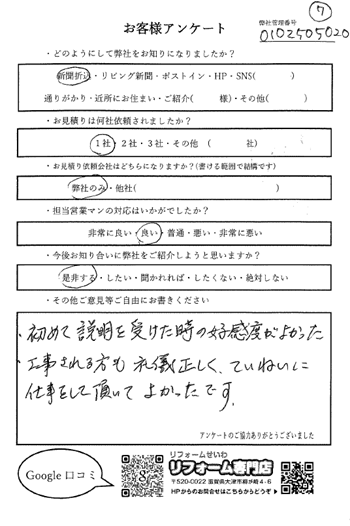 ⑦
お客様アンケート
弊社管理番号
0102505020
・どのようにして弊社をお知りになりましたか？
新聞折込・リビング新聞・ポストイン・HP・SNS( )
通りがかり・近所にお住まい・ご紹介( 様)・その他( )
・お見積りは何社依頼されましたか？
1社・2社・3社・その他 ( 社)
・お見積り依頼会社はどちらになりますか？(書ける範囲で結構です)
弊社のみ・他社( )
・担当営業マンの対応はいかがでしたか？
非常に良い・良い・普通・悪い・非常に悪い
・今後お知り合いに弊社をご紹介しようと思いますか？
是非する・したい・聞かれれば・したくない・絶対しない
・その他ご意見等ご自由にお書きください
・初めて説明を受けた時の好感度がよかった
・工事される方も礼儀正しく、ていねいに
仕事をして頂いてよかったです。
アンケートのご協力ありがとうございました
Google口コミ
リフォームせいわ
リフォーム専門店
〒520-0022 滋賀県大津市柳が崎4-6
HPからのお問合せはこちらからどうぞ